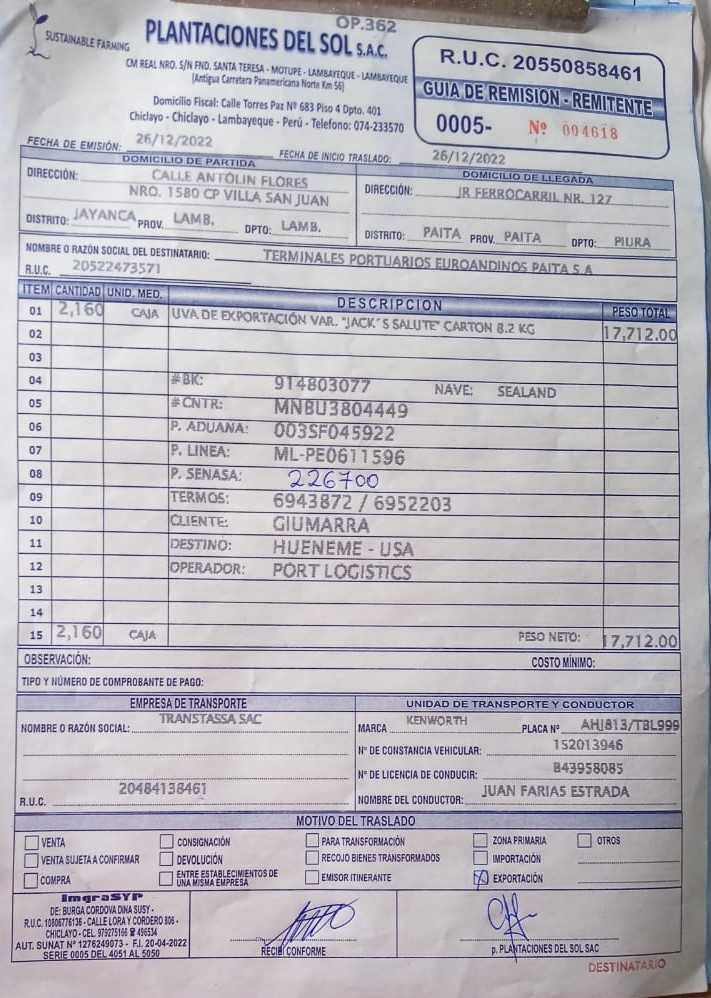 OP.362
SUSTAINABLE FARMING
PLANTACIONES DEL SOL S.A.C.
CM REAL NRO. S/N FND. SANTA TERESA - MOTUPE - LAMBAYEQUE - LAMBAYEQUE
(Antigua Carretera Panamericana Norte Km 56)
Domicilio Fiscal: Calle Torres Paz Nº 683 Piso 4 Dpto. 401
Chiclayo - Chiclayo - Lambayeque - Perú - Telefono: 074-233570
R.U.C. 20550858461
GUIA DE REMISION - REMITENTE
0005- Nº 004618
FECHA DE EMISIÓN: 26/12/2022 FECHA DE INICIO TRASLADO: 26/12/2022
DOMICILIO DE PARTIDA
DIRECCIÓN: CALLE ANTOLIN FLORES
NRO. 1580 CP VILLA SAN JUAN
DISTRITO: JAYANCA PROV. LAMB. DPTO: LAMB.
DOMICILIO DE LLEGADA
DIRECCIÓN: JR FERROCARRIL NR. 127
DISTRITO: PAITA PROV. PAITA DPTO: PIURA
NOMBRE O RAZÓN SOCIAL DEL DESTINATARIO: TERMINALES PORTUARIOS EUROANDINOS PAITA S.A
R.U.C. 20522473571
ITEM CANTIDAD UNID. MED. DESCRIPCION PESO TOTAL
01 2,160 CAJA UVA DE EXPORTACIÓN VAR. "JACK´S SALUTE" CARTON 8.2 KG 17,712.00
02
03
04 #BK: 914803077 NAVE: SEALAND
05 #CNTR: MNBU3804449
06 P. ADUANA: 003SF045922
07 P. LINEA: ML-PE0611596
08 P. SENASA: 226700
09 TERMOS: 6943872 / 6952203
10 CLIENTE: GIUMARRA
11 DESTINO: HUENEME - USA
12 OPERADOR: PORT LOGISTICS
13
14
15 2,160 CAJA PESO NETO: 17,712.00
OBSERVACIÓN: COSTO MÍNIMO:
TIPO Y NÚMERO DE COMPROBANTE DE PAGO:
EMPRESA DE TRANSPORTE
NOMBRE O RAZÓN SOCIAL: TRANSTASSA SAC
R.U.C. 20484138461
UNIDAD DE TRANSPORTE Y CONDUCTOR
MARCA KENWORTH PLACA Nº AHJ813/TBL999
Nº DE CONSTANCIA VEHICULAR: 152013946
Nº DE LICENCIA DE CONDUCIR: B43958085
NOMBRE DEL CONDUCTOR: JUAN FARIAS ESTRADA
MOTIVO DEL TRASLADO
VENTA CONSIGNACIÓN PARA TRANSFORMACIÓN ZONA PRIMARIA OTROS
VENTA SUJETA A CONFIRMAR DEVOLUCIÓN RECOJO BIENES TRANSFORMADOS IMPORTACIÓN
COMPRA ENTRE ESTABLECIMIENTOS DE UNA MISMA EMPRESA EMISOR ITINERANTE X EXPORTACIÓN
ImgraSYP
DE: BURGA CORDOVA DINA SUSY -
R.U.C. 10806776136 - CALLE LORA Y CORDERO 806 -
CHICLAYO - CEL. 979275166 ☎ 496534
AUT. SUNAT Nº 1276249073 - F.I. 20-04-2022
SERIE 0005 DEL 4051 AL 5050
RECIBÍ CONFORME
p. PLANTACIONES DEL SOL SAC
DESTINATARIO